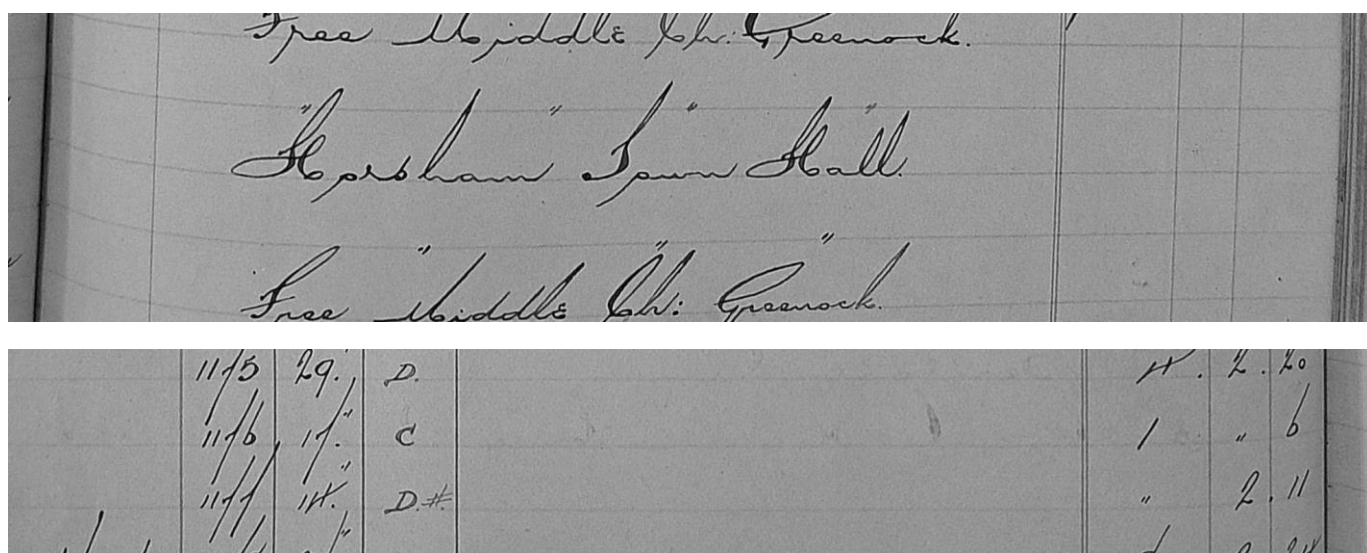 Free Middle Ch: Greenock.
" " " "
Horsham Town Hall.
" " "
Free Middle Ch: Greenock.
1175 29." D. 4. 2. 20
1176 17." C 1 " 6
1177 14." D.#. " 2. 11